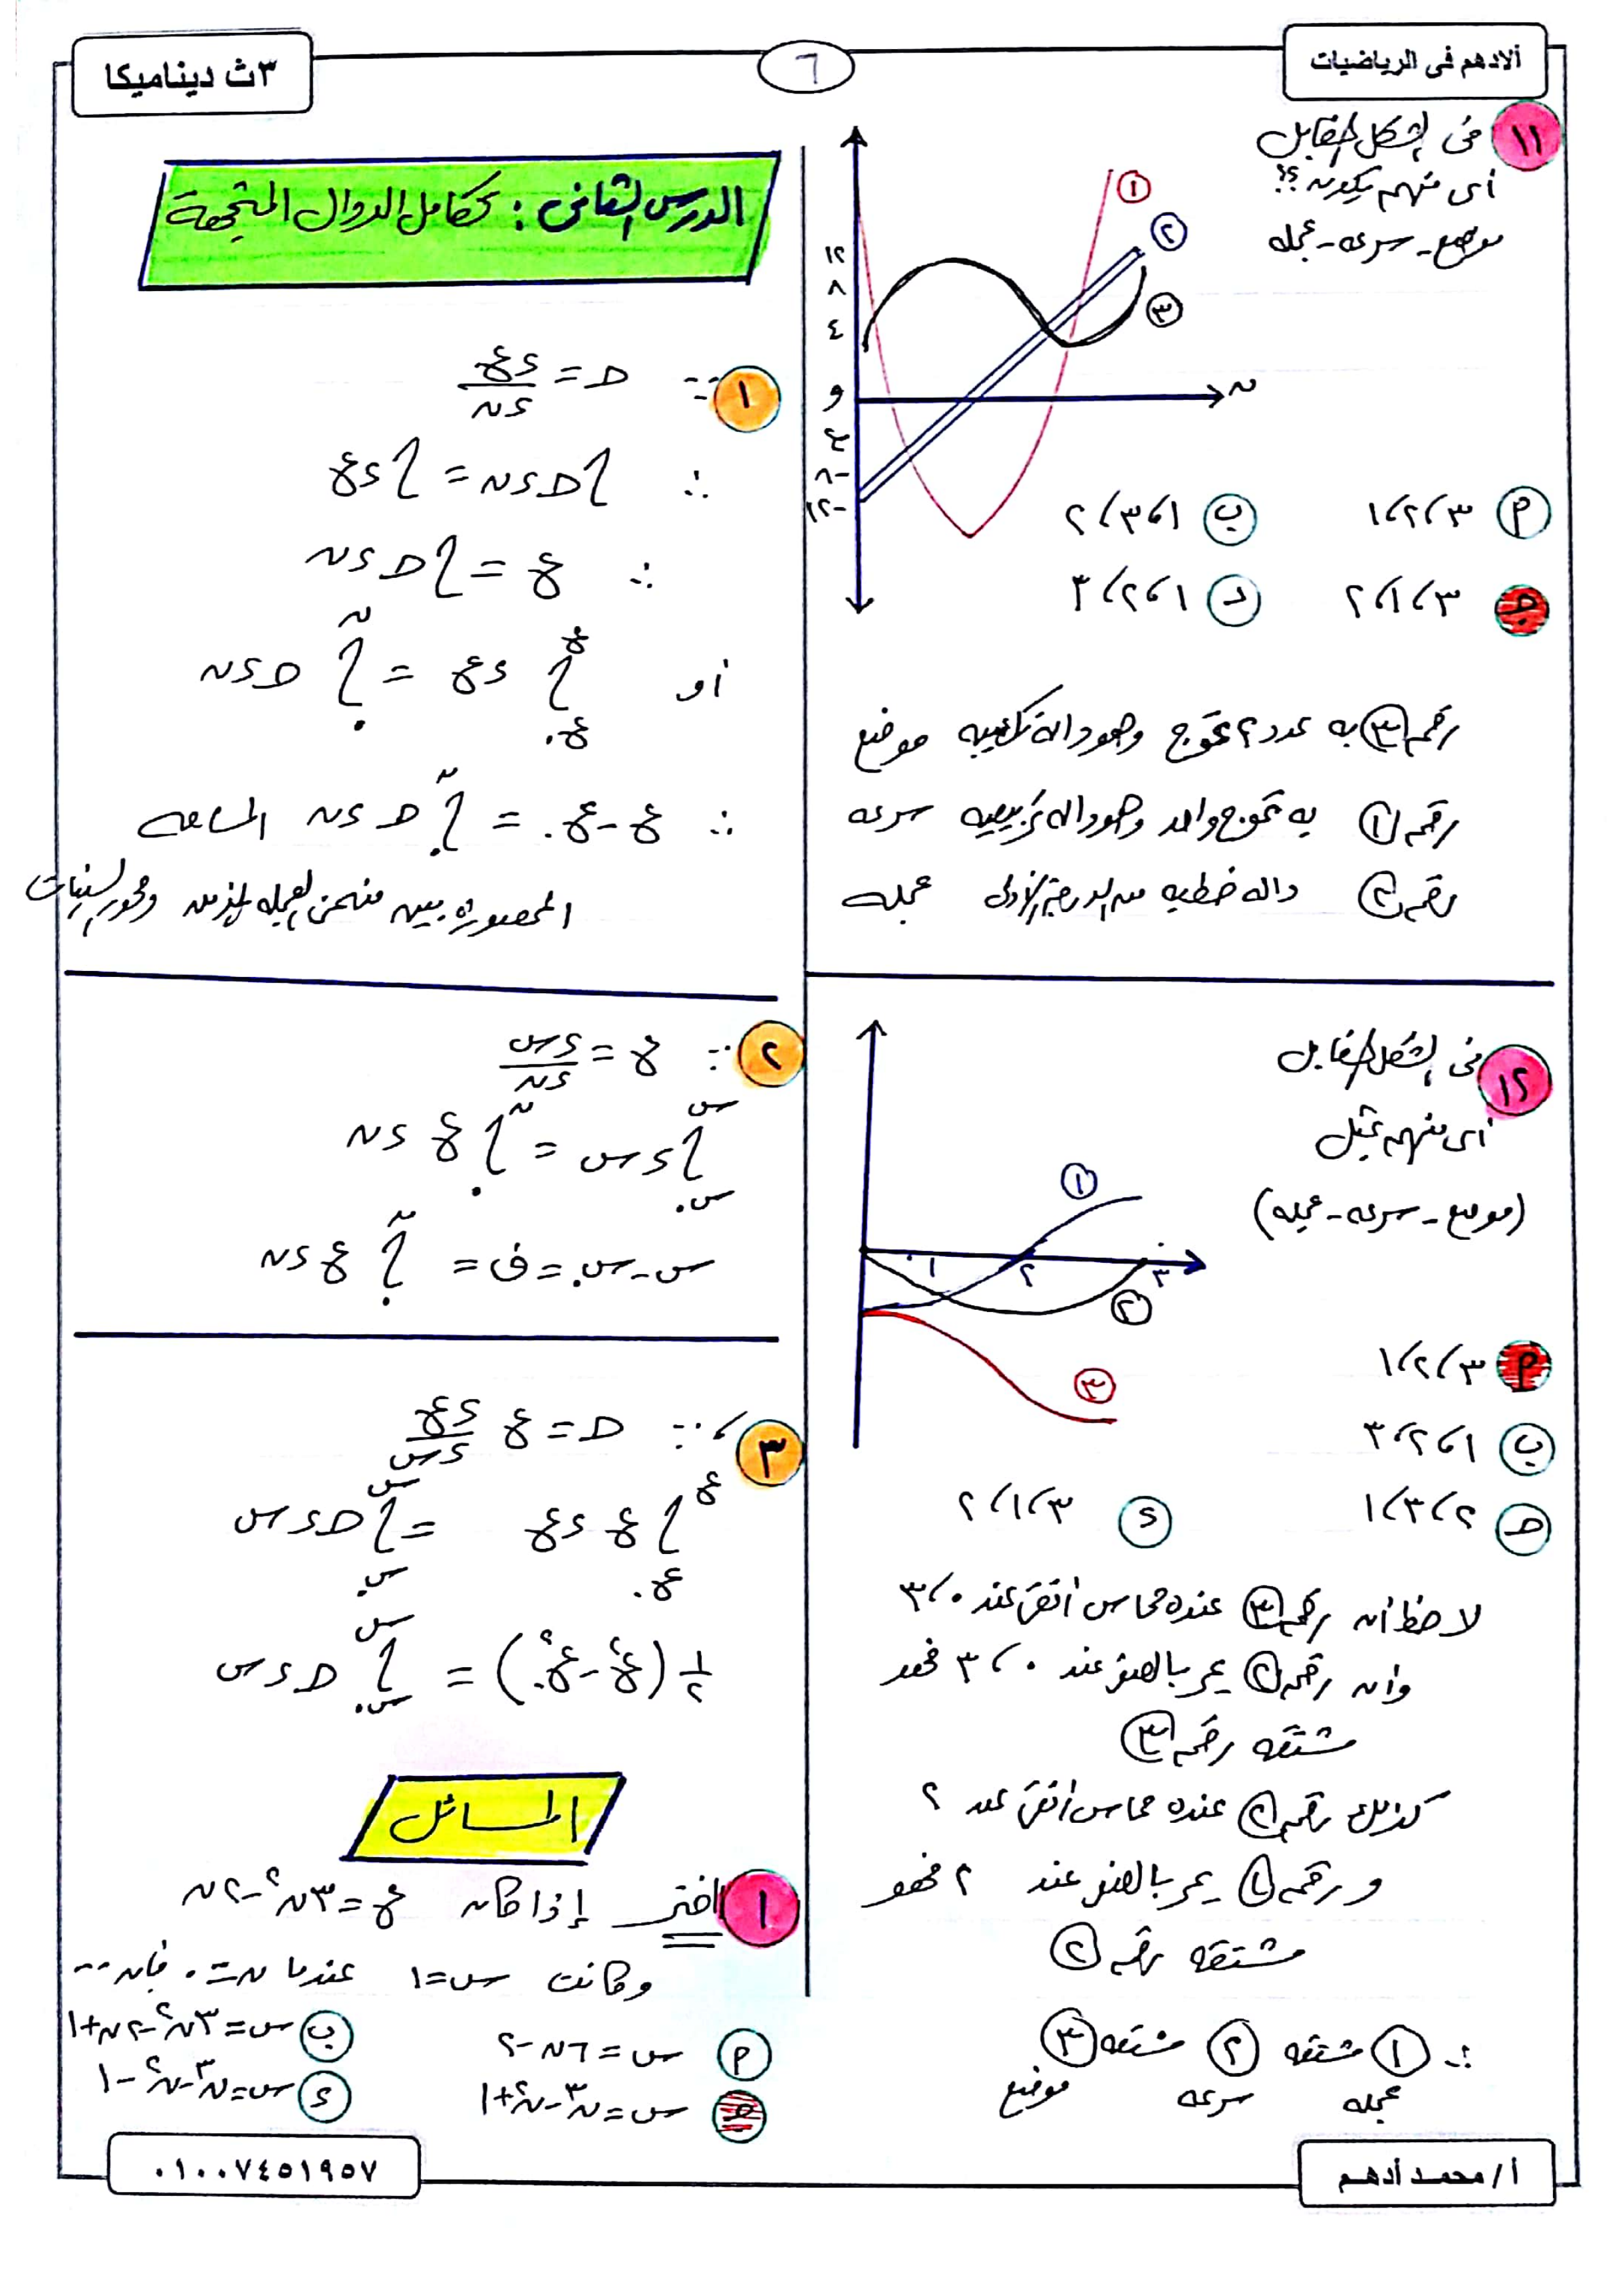 ألادهم فى الرياضيات
٦
٣ث ديناميكا
١١ فى الشكل المقابل
أى منهم يكون ؟؟
موضع - سرعه - عجله
١
٢
٣
١٢
٨
٤
و
-٤
-٨
-١٢
ن
أ ٣ ، ٢ ، ١
ب ١ ، ٣ ، ٢
جـ ٣ ، ١ ، ٢
د ١ ، ٢ ، ٣
رقم ٣ به عدد ٢ تموج وهو دالة تكعيبيه موضع
رقم ١ به تموج واحد وهو داله تربيعيه سرعه
رقم ٢ داله خطيه من الدرجة الأولى عجله
١٢ فى الشكل المقابل
أى منهم يمثل
(موضع - سرعه - عجله)
١
١ ٢ ٣
٢
٣
أ ٣ ، ٢ ، ١
ب ١ ، ٢ ، ٣
حـ ٢ ، ٣ ، ١
د ٣ ، ١ ، ٢
لاحظ أن رقم ٣ عنده مماس أفقى عند ٠ ، ٣
وأن رقم ٢ يمر بالصفر عند ٠ ، ٣ فهو
مشتقه رقم ٣
كذلك رقم ٢ عنده مماس أفقى عند ٢
و رقم ١ يمر بالصفر عند ٢ فهو
مشتقه رقم ٢
∴ ١ مشتقه ٢ مشتقه ٣
عجله سرعه موضع
الدرس الثانى : تكامل الدوال المتجهة
١ ∵ حـ = ءع/ءن
∴ ∫ حـ ءن = ∫ ءع
∴ ع = ∫ حـ ءن
أو ∫ع.^ع ءع = ∫.^ن حـ ءن
∴ ع - ع. = ∫.^ن حـ ءن المساحه
المحصورة بين منحنى العجله الزمن ومحور السينات
٢ ∵ ع = ءس/ءن
∫س.^س ءس = ∫.^ن ع ءن
س - س. = ف = ∫.^ن ع ءن
٣ ، ∵ حـ = ع ءع/ءس
∫ع.^ع ع ءع = ∫س.^س حـ ءس
١/٢ (ع٢ - ع.٢) = ∫س.^س حـ ءس
المسائل
١ اختر إذا كان ع = ٣ن٢ - ٢ن
وكانت س = ١ عندما ن = ٠ فإن ...
أ س = ٦ن - ٢
ب س = ٣ن٢ - ٢ن + ١
حـ س = ن٣ - ن٢ + ١
د س = ن٣ - ن٢ - ١
أ / محمد أدهم
٠١٠٠٧٤٥١٩٥٧